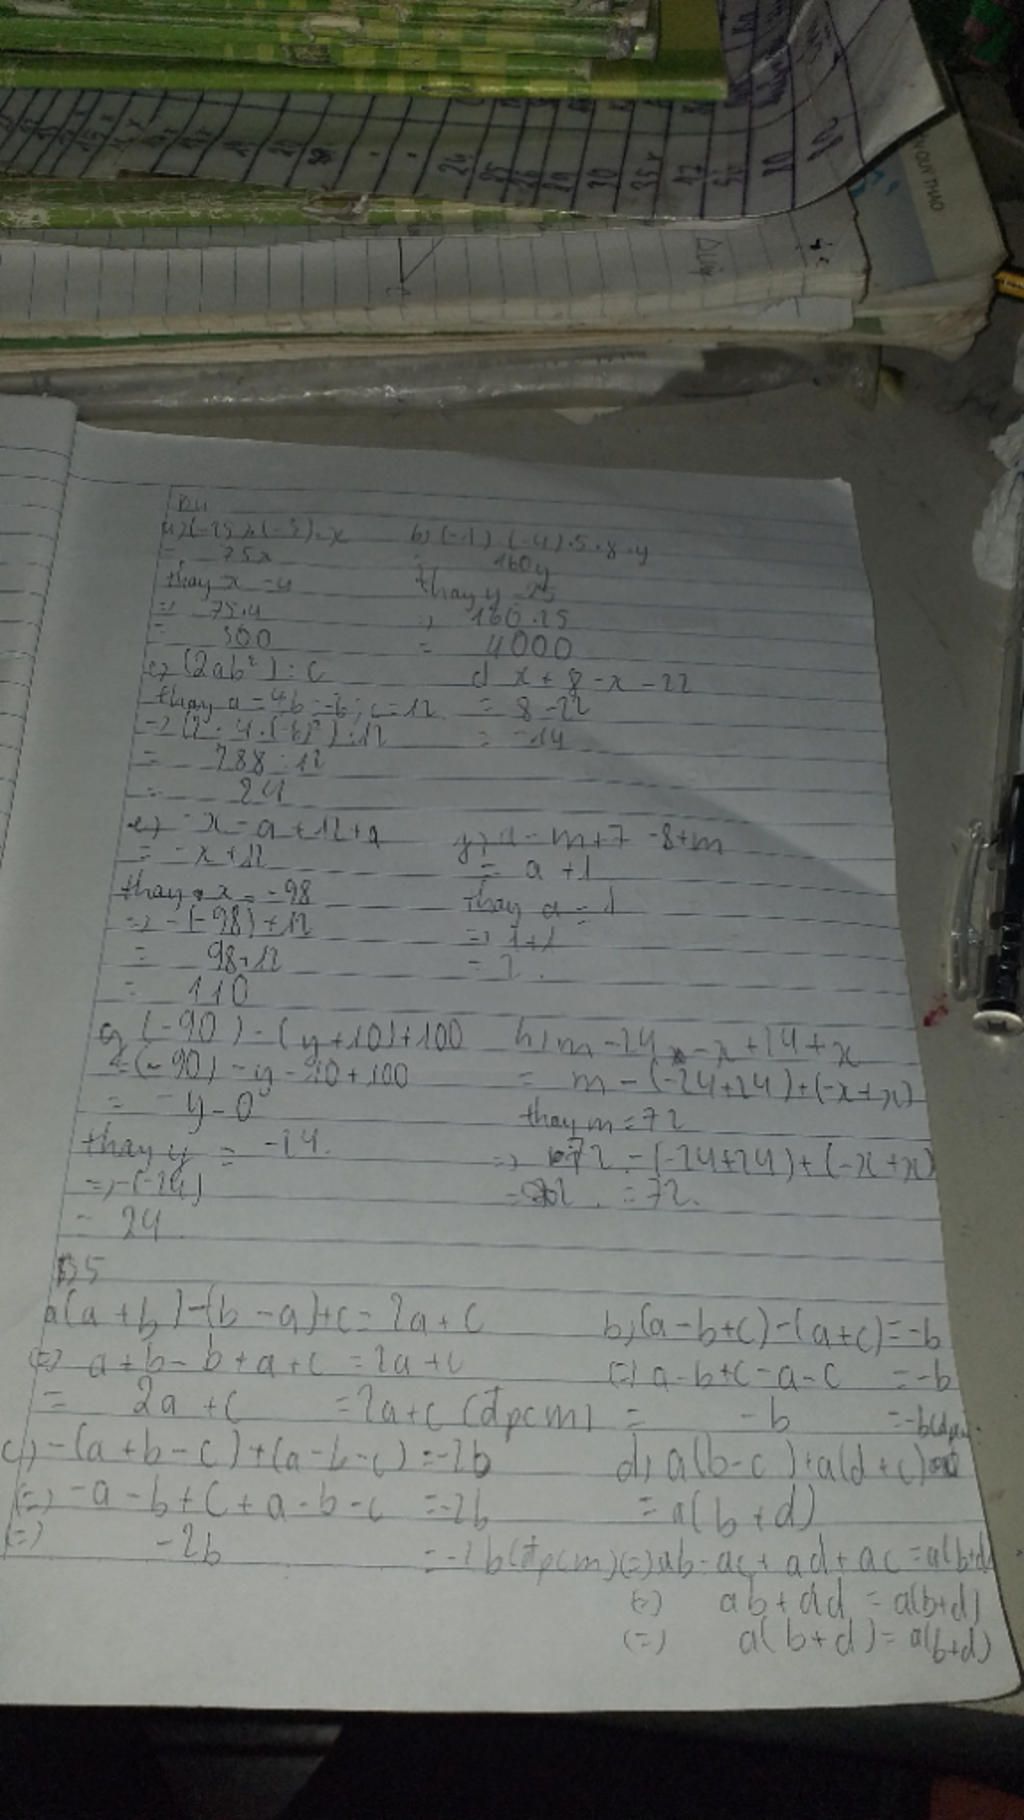 24
30
35x
17
80
N QUÝ THẢO
B4
a) (-25).(-3).x
= 75x
thay x = 4
=> 75.4
= 300
b) (-1).(-4).5.8.y
= 160y
thay y = 25
=> 160.25
= 4000
c) (2ab²) : c
thay a = 4 b = -6; c = 12
=> (2.4.(-6)²) : 12
= 288 : 12
= 24
d x + 8 - x - 22
= 8 - 22
= -14
e) - x - a + 12 + a
= - x + 12
thay x = -98
=> -(-98) + 12
= 98 + 12
= 110
y) a - m + 7 - 8 + m
= a + 1
thay a = 1
=> 1 + 1
= 2.
g (-90) - (y + 10) + 100
= (-90) - y - 10 + 100
= - y - 0
thay y = -24.
=> -(-24)
= 24
h) m - 24 - x + 24 + x
= m - (-24 + 24) + (-x + x)
thay m = 72
=> 72 - (-24 + 24) + (-x + x)
= 72.
B5
a (a + b) - (b - a) + c = 2a + c
(=) a + b - b + a + c = 2a + c
= 2a + c = 2a + c (đpcm)
b, (a - b + c) - (a + c) = -b
(=) a - b + c - a - c = -b
= - b = -b (đpcm.
c) - (a + b - c) + (a - b - c) = -2b
(=) - a - b + c + a - b - c = -2b
(=) - 2b = -2b (đpcm)
d, a(b - c) + a(d + c)
= a(b + d)
(=) ab - ac + ad + ac = a(b + d
(=) ab + ad = a(b + d)
(=) a(b + d) = a(b + d)